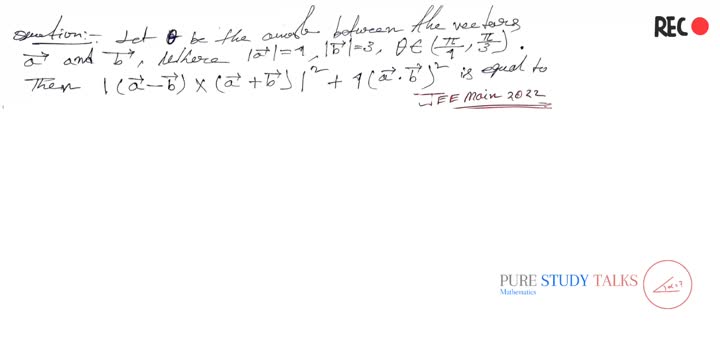 REC
Question:- Let θ be the angle between the vectors
a⃗ and b⃗, where |a⃗|=4, |b⃗|=3, θ∈(π/4, π/3).
Then |(a⃗-b⃗)×(a⃗+b⃗)|²+4(a⃗·b⃗)² is equal to
JEE Main 2022
PURE STUDY TALKS
Mathematics